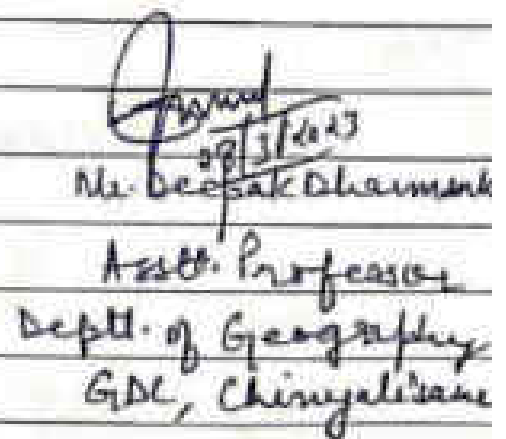 28/3/2023
Mr. Deepak Dharmark
Asstt. Professor
Deptt. of Geography
GDC, Chinyalisaur